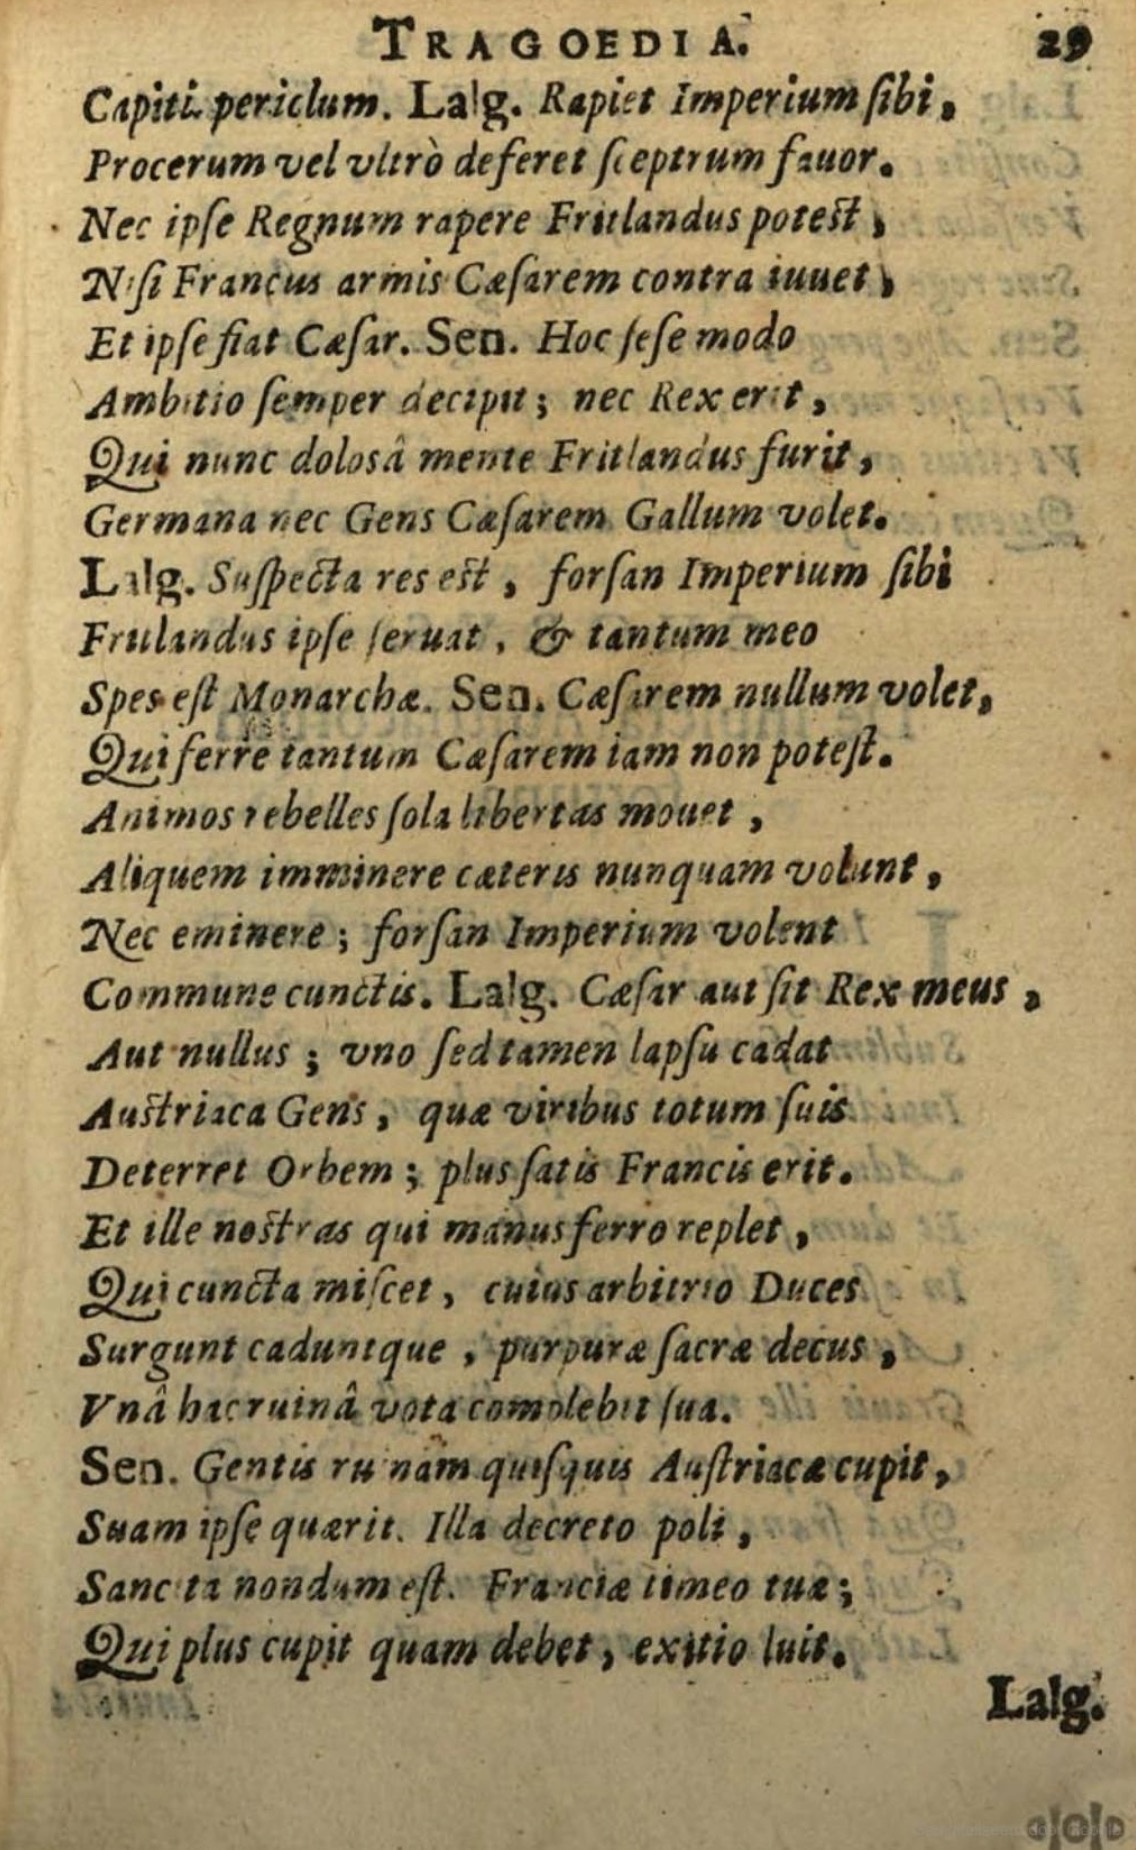 TRAGOEDIA. 29
Capiti periclum. Lalg. Rapiet Imperium ſibi,
Procerum vel vltrò deferet ſceptrum fauor.
Nec ipſe Regnum rapere Fritlandus poteſt,
Niſi Francus armis Cæſarem contra iuuet,
Et ipſe fiat Cæſar. Sen. Hoc ſeſe modo
Ambitio ſemper decipit; nec Rex erit,
Qui nunc dolosâ mente Fritlandus furit,
Germana nec Gens Cæſarem Gallum volet.
Lalg. Suſpecta res eſt, forſan Imperium ſibi
Fritlandus ipſe ſeruat, & tantum meo
Spes eſt Monarchæ. Sen. Cæſarem nullum volet,
Qui ferre tantum Cæſarem iam non poteſt.
Animos rebelles ſola libertas mouet,
Aliquem imminere cæteris nunquam volunt,
Nec eminere; forſan Imperium volent
Commune cunctis. Lalg. Cæſar aut ſit Rex meus,
Aut nullus; vno ſed tamen lapſu cadat
Auſtriaca Gens, quæ viribus totum ſuis
Deterret Orbem; plus ſatis Francis erit.
Et ille noſtras qui manus ferro replet,
Qui cuncta miſcet, cuius arbitrio Duces
Surgunt caduntque, purpuræ ſacræ decus,
Vnâ hac ruinâ vota complebit ſua.
Sen. Gentis ruinam quiſquis Auſtriacæ cupit,
Suam ipſe quærit. Illa decreto poli,
Sancita nondum eſt. Franciæ timeo tuæ;
Qui plus cupit quam debet, exitio luit.
Lalg.